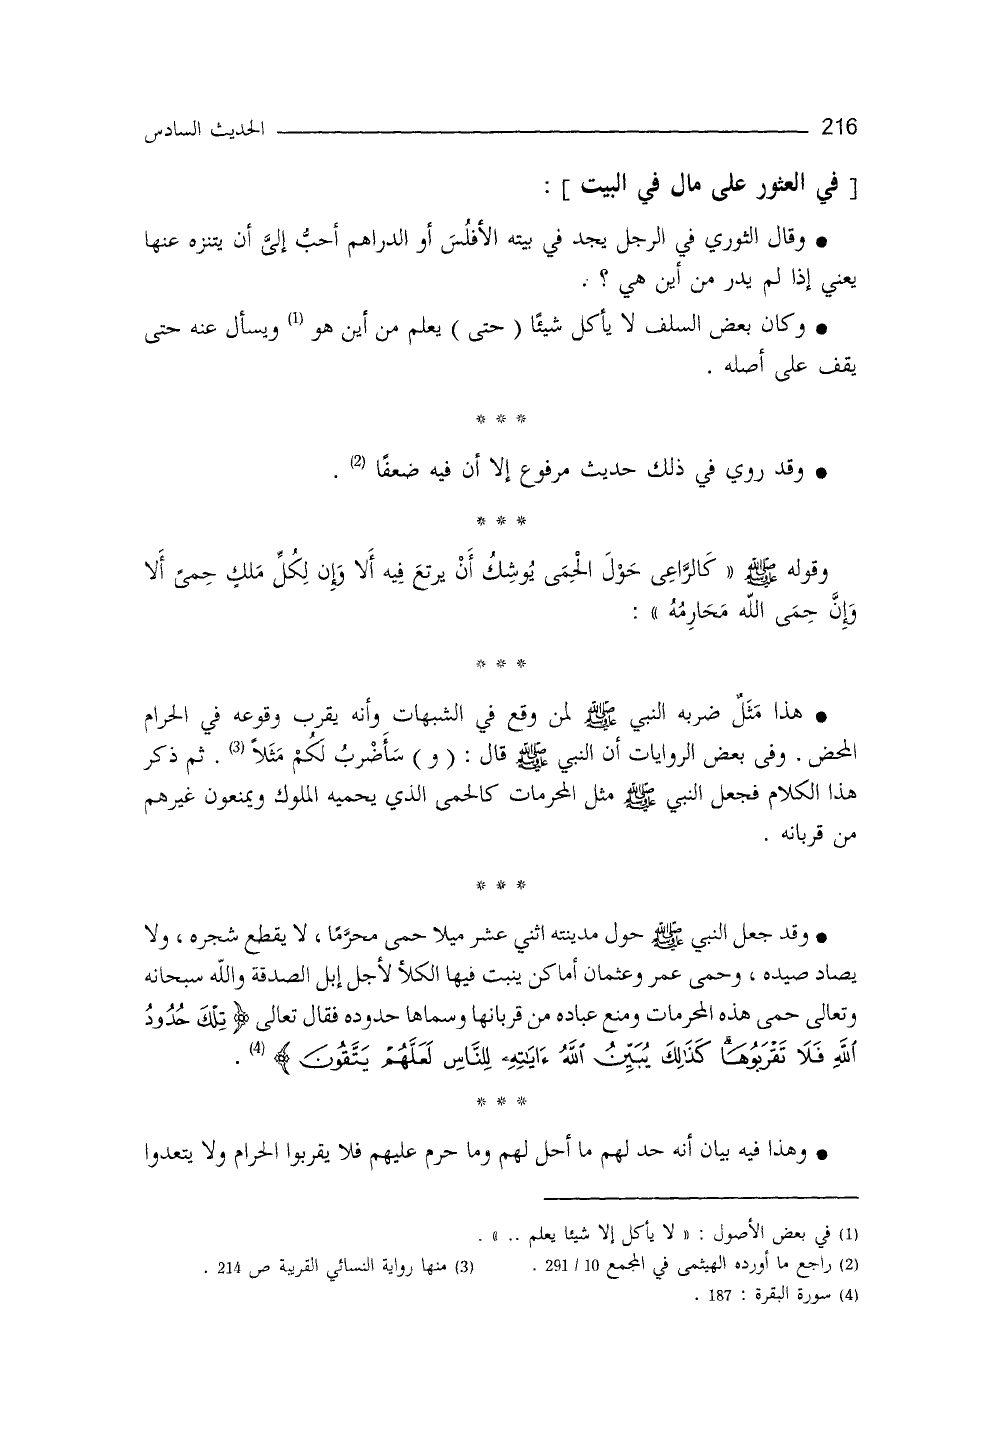 216 الحديث السادس
[ في العثور على مال في البيت ] :
● وقال الثوري في الرجل يجد في بيته الأفلُسَ أو الدراهم أحبُّ إليَّ أن يتنزه عنها
يعني إذا لم يدر من أين هي ؟ .
● وكان بعض السلف لا يأكل شيئًا ( حتى ) يعلم من أين هو (1) ويسأل عنه حتى
يقف على أصله .
* * *
● وقد روي في ذلك حديث مرفوع إلا أن فيه ضعفًا (2) .
* * *
وقوله ﷺ « كَالرَّاعِى حَوْلَ الْحِمَى يُوشِكُ أَنْ يرتعَ فِيه أَلا وَإِن لِكُلِّ مَلكٍ حِمىً أَلا
وَإِنَّ حِمَى اللّه مَحَارِمُهُ » :
* * *
● هذا مَثَلٌ ضربه النبي ﷺ لمن وقع في الشبهات وأنه يقرب وقوعه في الحرام
المحض . وفى بعض الروايات أن النبي ﷺ قال : ( و ) سَأَضْربُ لَكُمْ مَثَلاً (3) . ثم ذكر
هذا الكلام فجعل النبي ﷺ مثل المحرمات كالحمى الذي يحميه الملوك ويمنعون غيرهم
من قربانه .
* * *
● وقد جعل النبي ﷺ حول مدينته اثني عشر ميلا حمى محرَّمًا ، لا يقطع شجره ، ولا
يصاد صيده ، وحمى عمر وعثمان أماكن ينبت فيها الكلأ لأجل إبل الصدقة واللّه سبحانه
وتعالى حمى هذه المحرمات ومنع عباده من قربانها وسماها حدوده فقال تعالى ﴿ تِلْكَ حُدُودُ
ٱللَّهِ فَلَا تَقْرَبُوهَاۗ كَذَٰلِكَ يُبَيِّنُ ٱللَّهُ ءَايَٰتِهِۦ لِلنَّاسِ لَعَلَّهُمْ يَتَّقُونَ ﴾ (4) .
* * *
● وهذا فيه بيان أنه حد لهم ما أحل لهم وما حرم عليهم فلا يقربوا الحرام ولا يتعدوا
(1) في بعض الأصول : « لا يأكل إلا شيئا يعلم .. » .
(2) راجع ما أورده الهيثمى في المجمع 10 / 291 . (3) منها رواية النسائي القريبة ص 214 .
(4) سورة البقرة : 187 .